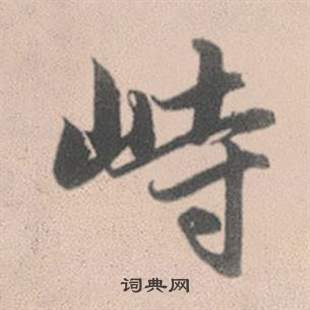 峙
词典网